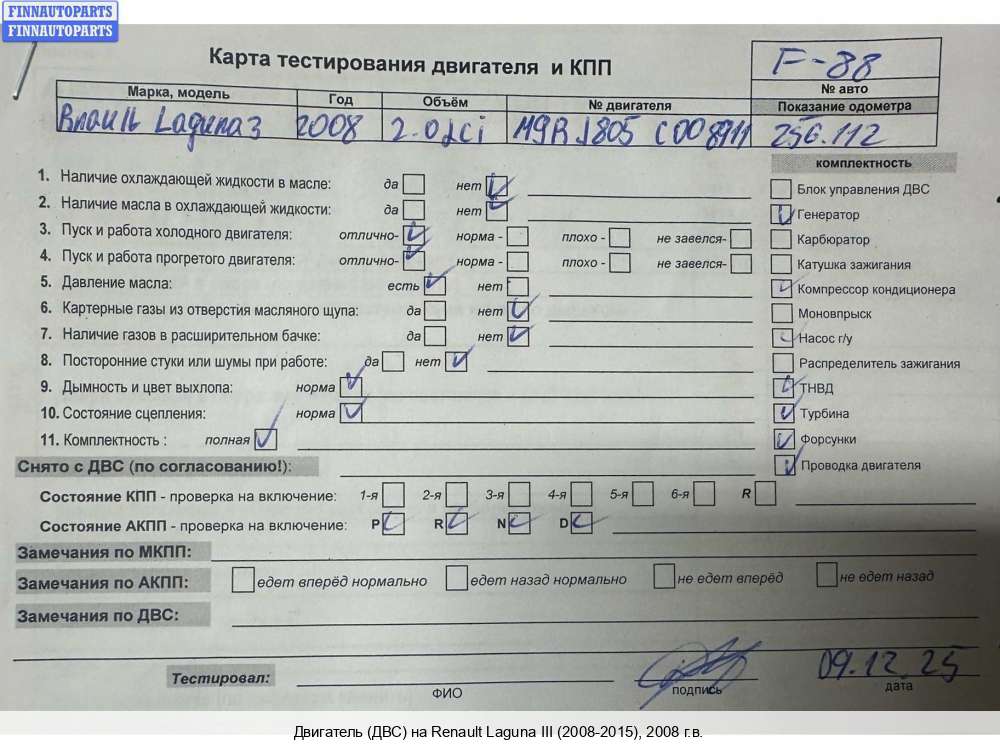 FINNAUTOPARTS
FINNAUTOPARTS
Карта тестирования двигателя и КПП
F-88
№ авто
Марка, модель Год Объём № двигателя Показание одометра
Renault Laguna 3 2008 2.0dci M9R J805 C008911 256.112
комплектность
1. Наличие охлаждающей жидкости в масле: да нет
Блок управления ДВС
2. Наличие масла в охлаждающей жидкости: да нет
Генератор
3. Пуск и работа холодного двигателя: отлично- норма - плохо - не завелся-
Карбюратор
4. Пуск и работа прогретого двигателя: отлично- норма - плохо - не завелся-
Катушка зажигания
5. Давление масла: есть нет
Компрессор кондиционера
6. Картерные газы из отверстия масляного щупа: да нет
Моновпрыск
7. Наличие газов в расширительном бачке: да нет
Насос г/у
8. Посторонние стуки или шумы при работе: да нет
Распределитель зажигания
9. Дымность и цвет выхлопа: норма
ТНВД
10. Состояние сцепления: норма
Турбина
11. Комплектность : полная
Форсунки
Снято с ДВС (по согласованию!):
Проводка двигателя
Состояние КПП - проверка на включение: 1-я 2-я 3-я 4-я 5-я 6-я R
Состояние АКПП - проверка на включение: P R N D
Замечания по МКПП:
Замечания по АКПП: едет вперёд нормально едет назад нормально не едет вперёд не едет назад
Замечания по ДВС:
Тестировал: 09.12.25
ФИО подпись дата
Двигатель (ДВС) на Renault Laguna III (2008-2015), 2008 г.в.